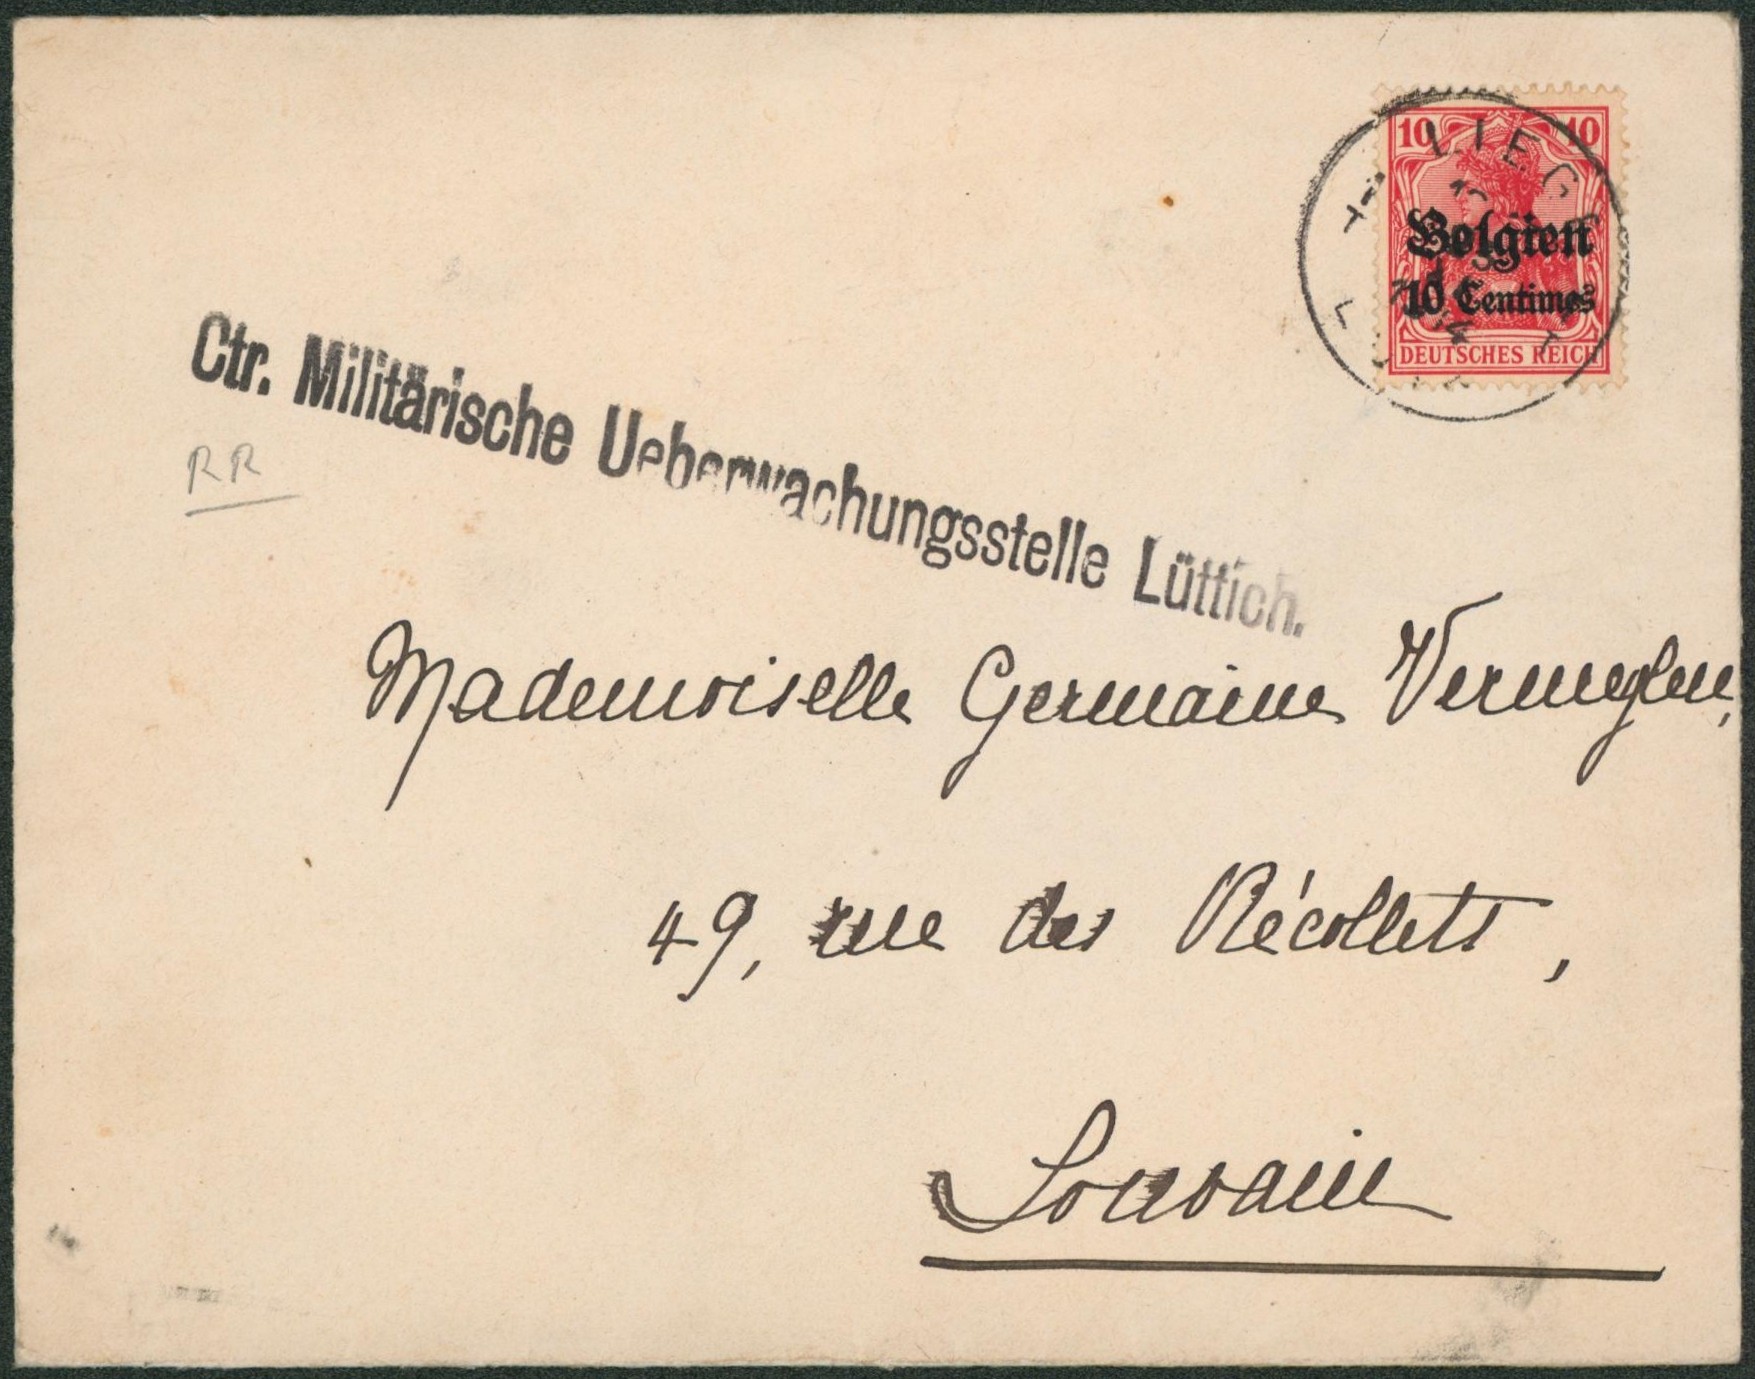 10 10
Belgien
10 Centimes
DEUTSCHES REICH
LIEGE
Ctr. Militärische Ueberwachungsstelle Lüttich.
RR
Mademoiselle Germaine
49, rue des Récollets,
Louvain